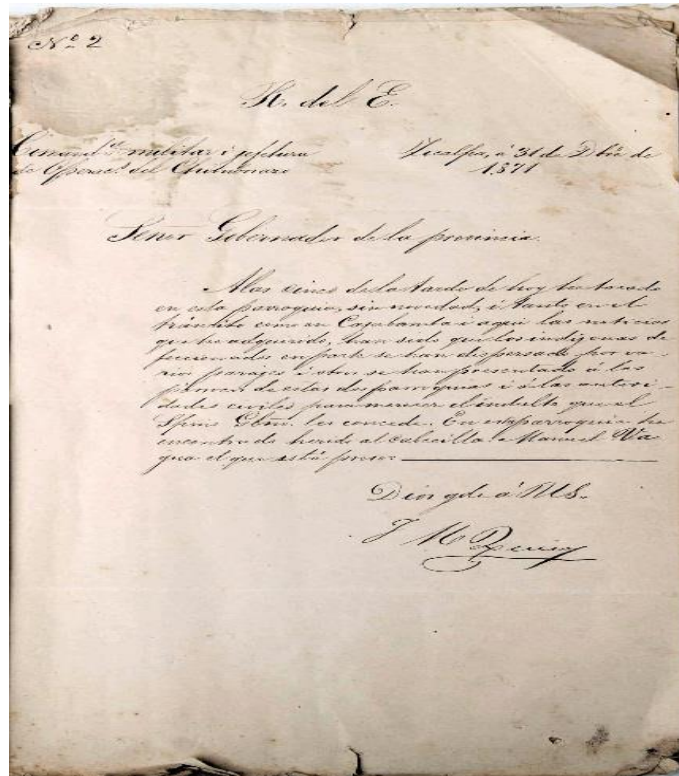 Nº 2
R. del E.
Comand.ª militar i jefetura
de Operac.s del Chimborazo
Sicalpa, á 31 de Dbre de
1871
Señor Gobernador de la provincia.
A las cinco de la tarde de hoy he tocado
en esta parroquia, sin novedad, i tanto en el
tránsito como en Cajabamba i aquí las noticias
que he adquirido, han sido que los indígenas de
feccionados en parte se han dispersado por va-
rios parajes i otros se han presentado á los
de estas dos parroquias i á las autori-
dades civiles para merecer el indulto que el
Spmo Gbno. les concede. En esta parroquia he
encontrado herido al cabecilla Manuel
el que está preso
Dios gde á US.
J M